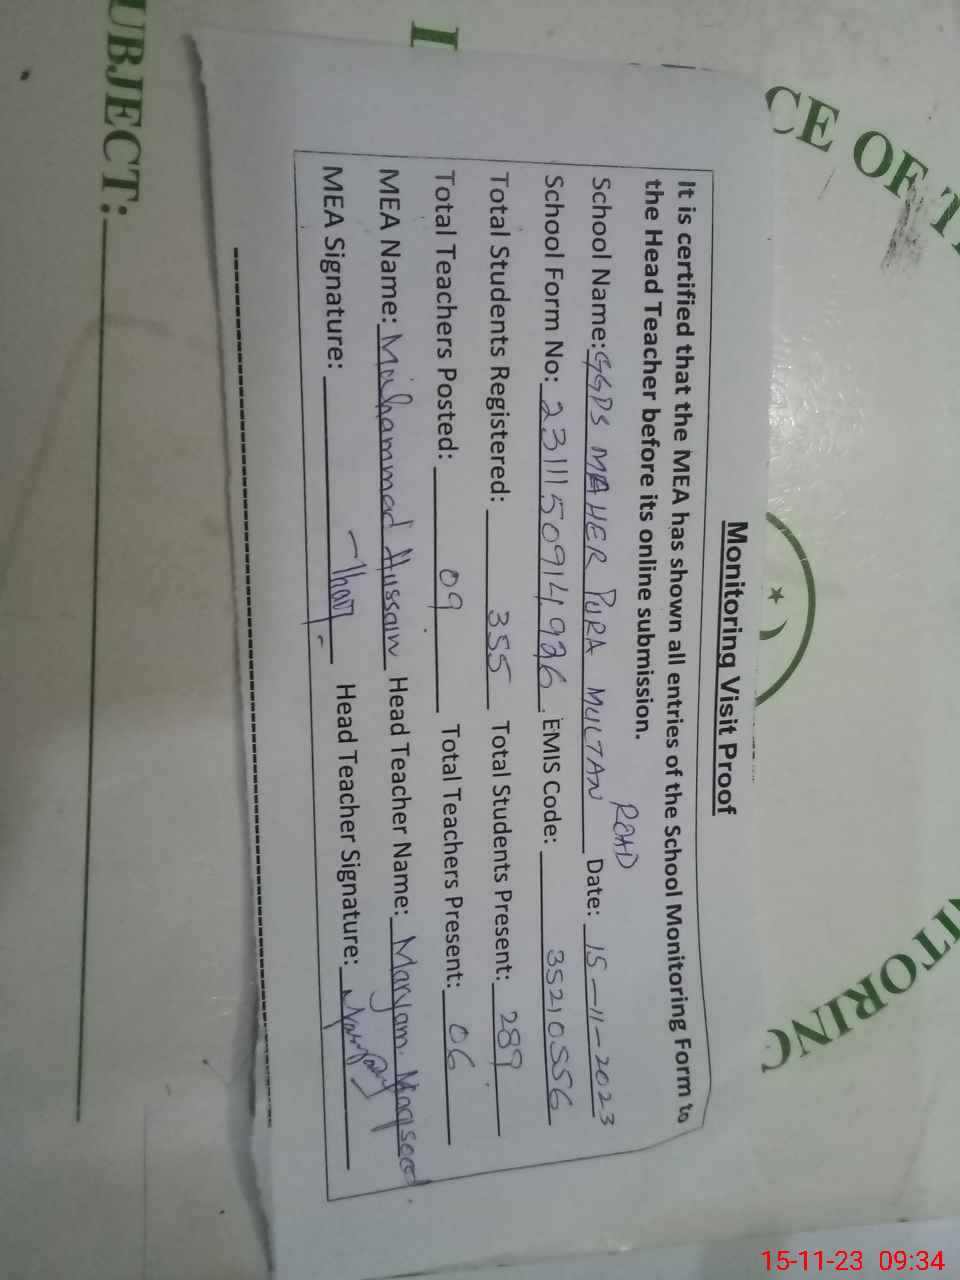 Monitoring Visit Proof
It is certified that the MEA has shown all entries of the School Monitoring Form to
the Head Teacher before its online submission.
School Name: GGPS MAHER PURA MULTAN ROAD Date: 15-11-2023
School Form No: 2311150914926 EMIS Code: 35210556
Total Students Registered: 355 Total Students Present: 289
Total Teachers Posted: 09 Total Teachers Present: 06
MEA Name: Muhammad Hussain Head Teacher Name: Maryam Maqsood
MEA Signature: Head Teacher Signature:
UBJECT:
CE OF T
ITORING
15-11-23 09:34